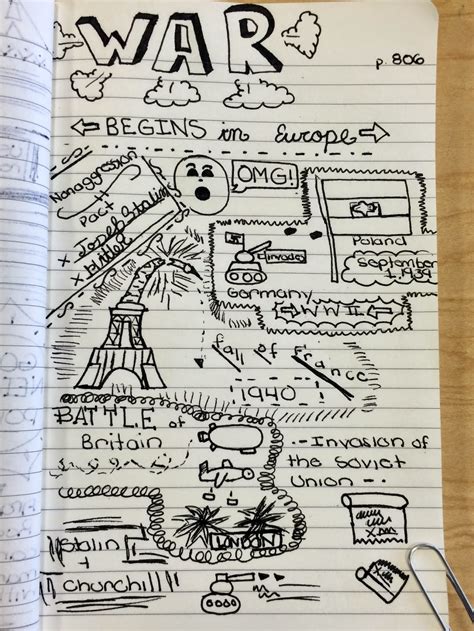 WAR
p. 806
BEGINS in Europe
Nonaggression
Pact
x Josef Stalin
x Hitler
OMG!
Poland
invades
September
1, 1939
Germany
WWII
fall of France
1940
BATTLE of
Britain
-- Invasion of
the Soviet
Union --
LONDON
+
Churchill